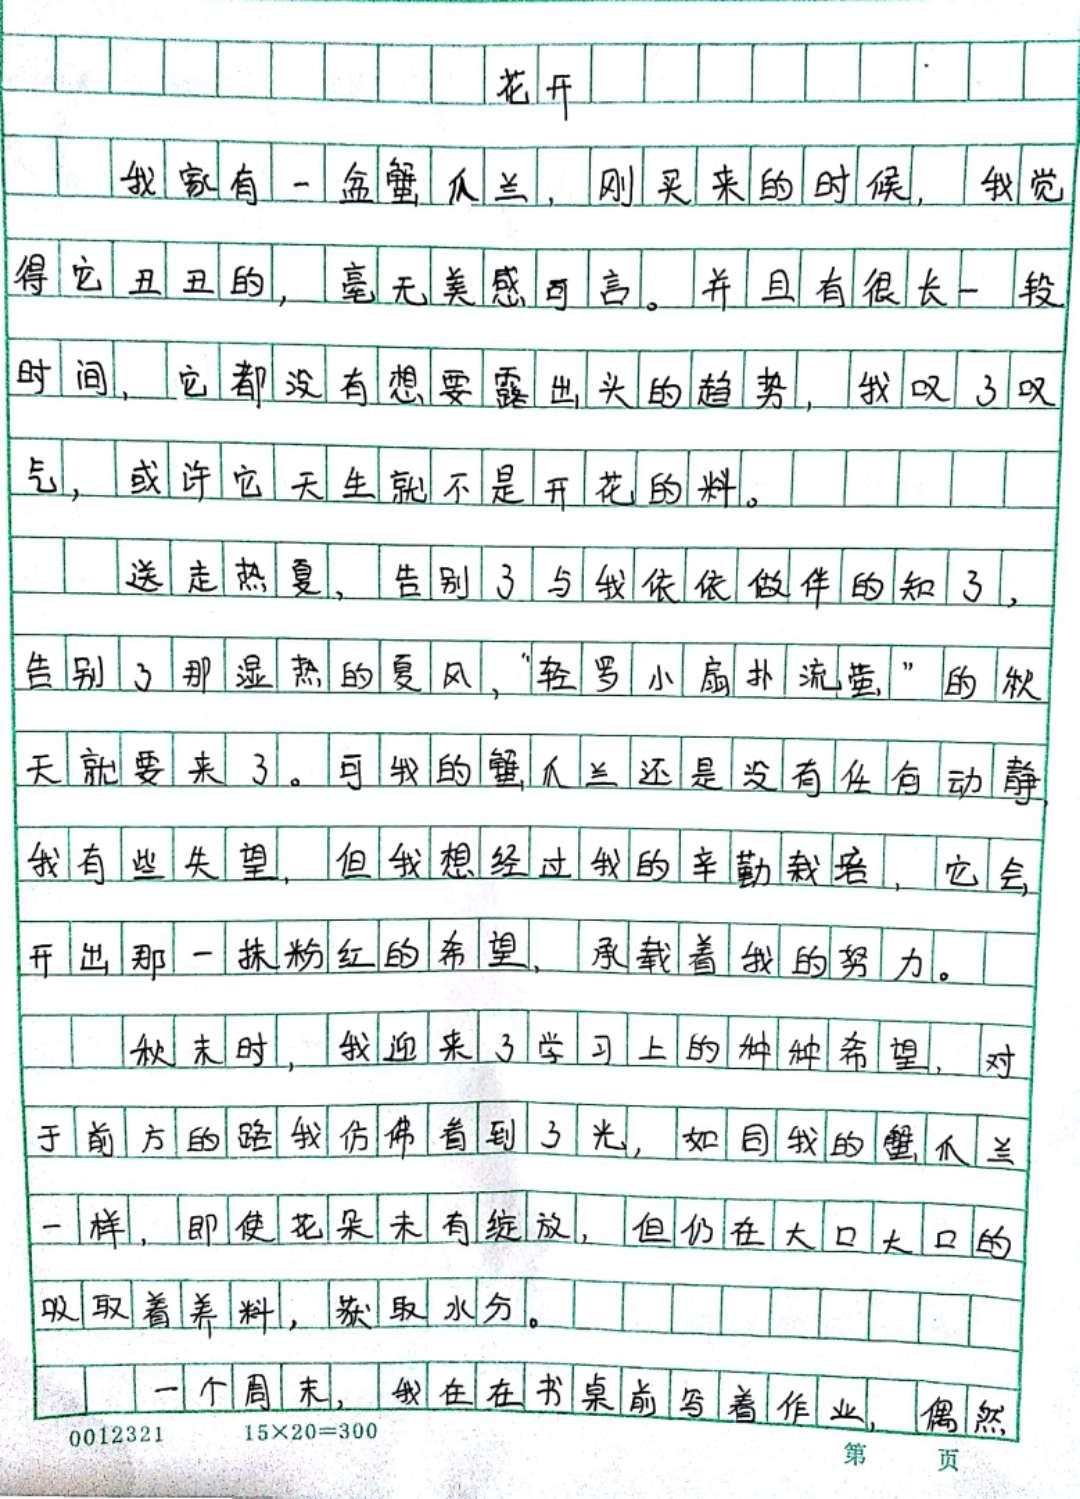 花开
我家有一盆蟹爪兰，刚买来的时候，我觉
得它丑丑的，毫无美感可言。并且有很长一段
时间，它都没有想要露出头的趋势，我叹了叹
气，或许它天生就不是开花的料。
送走热夏，告别了与我依依做伴的知了，
告别了那湿热的夏风，“轻罗小扇扑流萤”的秋
天就要来了。可我的蟹爪兰还是没有任何动静，
我有些失望，但我想经过我的辛勤栽培，它会
开出那一抹粉红的希望，承载着我的努力。
秋末时，我迎来了学习上的种种希望，对
于前方的路我仿佛看到了光，如同我的蟹爪兰
一样，即使花朵未有绽放，但仍在大口大口的
吸取着养料，获取水分。
一个周末，我在在书桌前写着作业，偶然
0012321 15×20=300
第 页